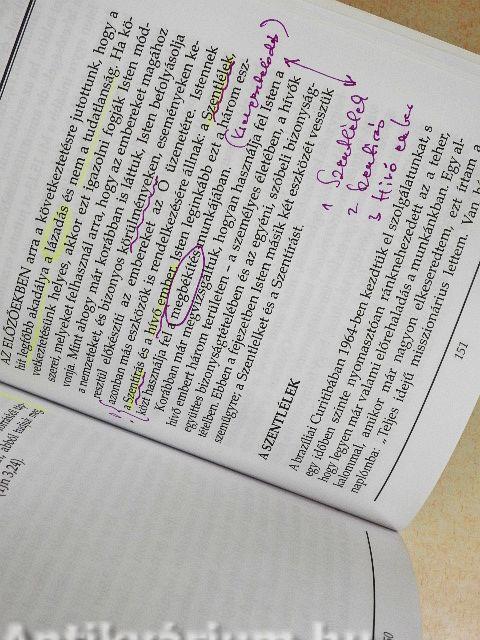 AZ ELŐZŐEKBEN arra a következtetésre jutottunk, hogy a
hit legfőbb akadálya a lázadás és nem a tudatlanság. Ha kö-
vetkeztetésünk helyes, akkor ezt igazolni fogják Isten mód-
szerei, melyeket felhasznál arra, hogy az embereket magához
vonja. Mint ahogy már korábban is láttuk, Isten befolyásolja
a nemzeteket és bizonyos körülményeken, eseményeken ke-
resztül előkészíti az embereket az Ő üzenetére. Istennek
azonban más eszközök is rendelkezésére állnak: a Szentlélek,
a Szentírás és a hívő ember. Isten leginkább ezt a három esz-
közt használja fel a megbékítés munkájában.
Korábban már megvizsgáltuk, hogyan használja fel Isten a
hívő embert három területen – a személyes életében, a hívők
együttes bizonyságtételében és az egyéni, szóbeli bizonyság-
tételben. Ebben a fejezetben Isten másik két eszközét vesszük
szemügyre; a Szentlelket és a Szentírást.
1 Szentlélek
2 Szentírás
3 Hívő ember
A SZENTLÉLEK
A brazíliai Curitibában 1964-ben kezdtük el szolgálatunkat, s
egy időben szinte nyomasztóan ránknehezedett az a teher,
hogy legyen már valami előrehaladás a munkánkban. Egy al-
kalommal, amikor már nagyon elkeseredtem, ezt írtam a
naplómba: „Teljes idejű misszionárius lettem. Van
151
abból
(1Jn 3,24).
Antikvárium.hu